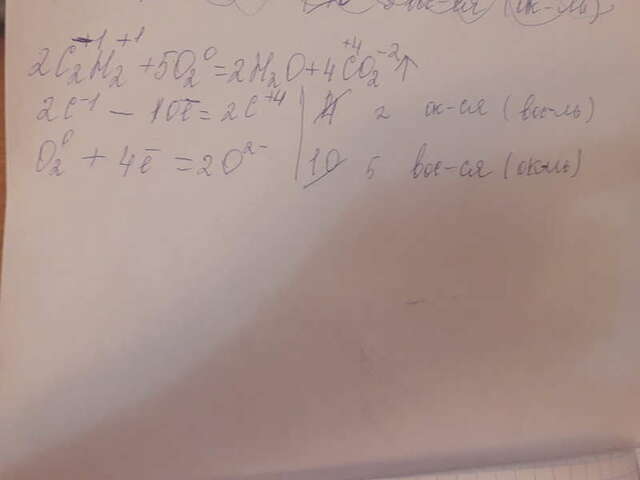 2C₂⁻¹H₂⁺¹ + 5O₂⁰ = 2H₂O + 4C⁺⁴O₂⁻²↑
2C⁻¹ – 10ē = 2C⁺⁴ | 4 2 ок-ся (вос-ль)
O₂⁰ + 4ē = 2O²⁻ | 10 5 вос-ся (ок-ль)